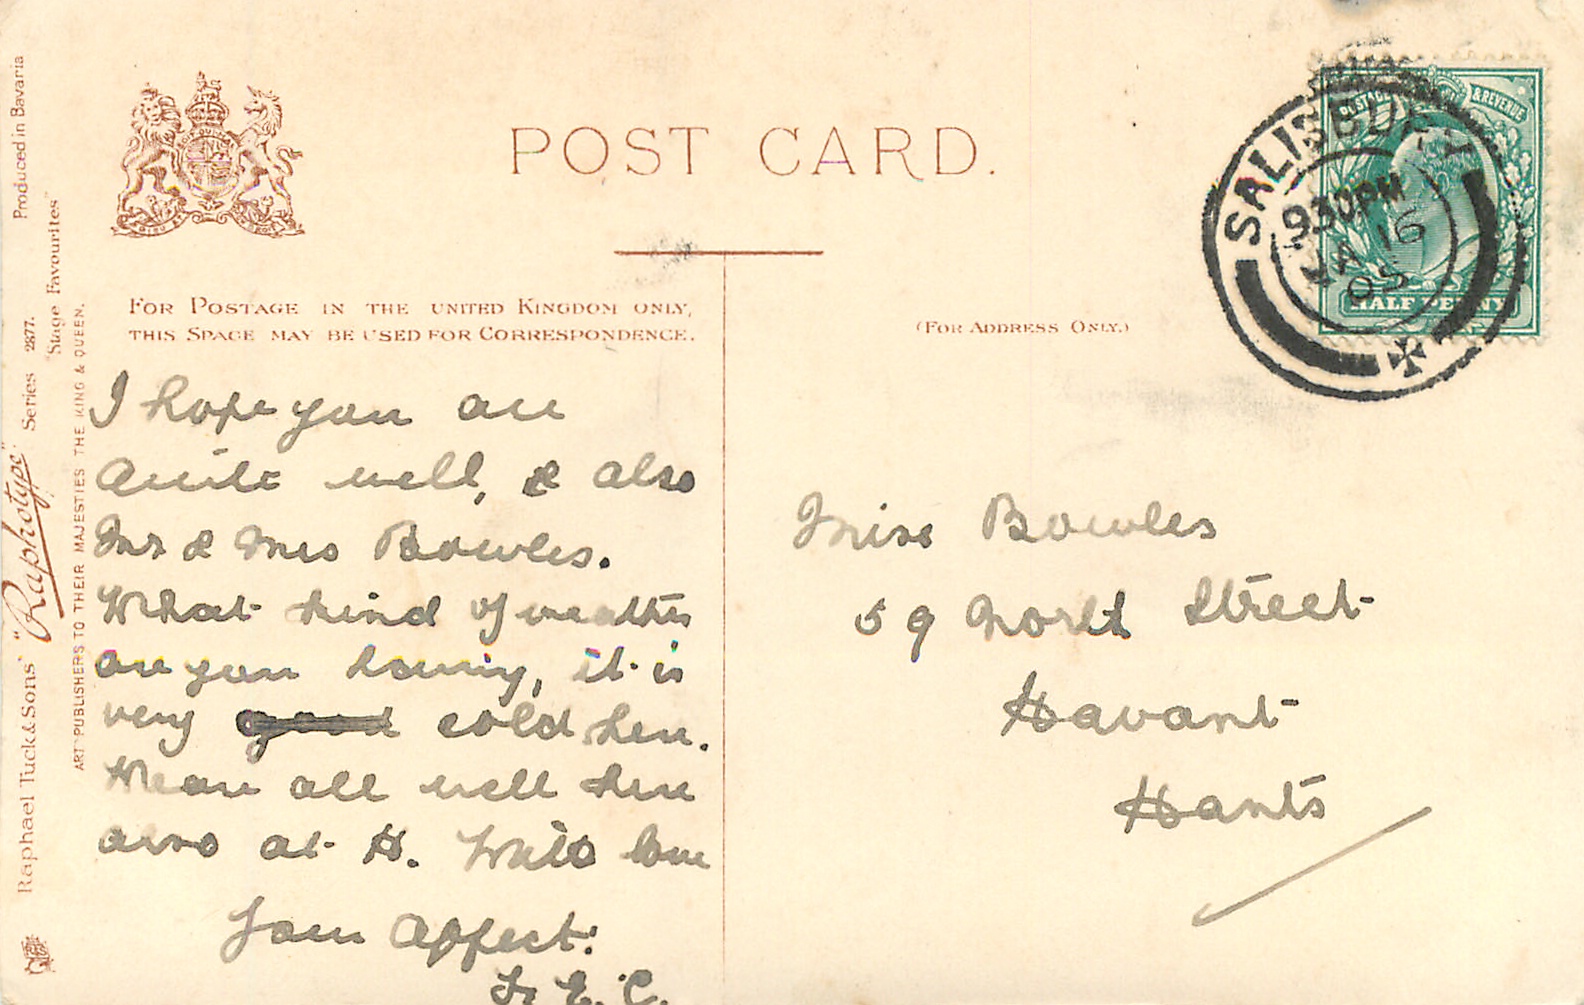 POST CARD.
FOR POSTAGE IN THE UNITED KINGDOM ONLY,
THIS SPACE MAY BE USED FOR CORRESPONDENCE.
(FOR ADDRESS ONLY.)
I hope you are
quite well, & also
Mr & Mrs Bowles.
What kind of weather
are you having, it is
very good cold here.
We are all well here
also at H. With love
Your Affect:
E. C.
Miss Bowles
59 North Street
Havant
Hants
SALISBURY
930PM
JA 16
05
POSTAGE & REVENUE
HALF PENNY
Raphael Tuck & Sons' "Raphotype" Series 2877. Produced in Bavaria
"Stage Favourites"
ART PUBLISHERS TO THEIR MAJESTIES THE KING & QUEEN.